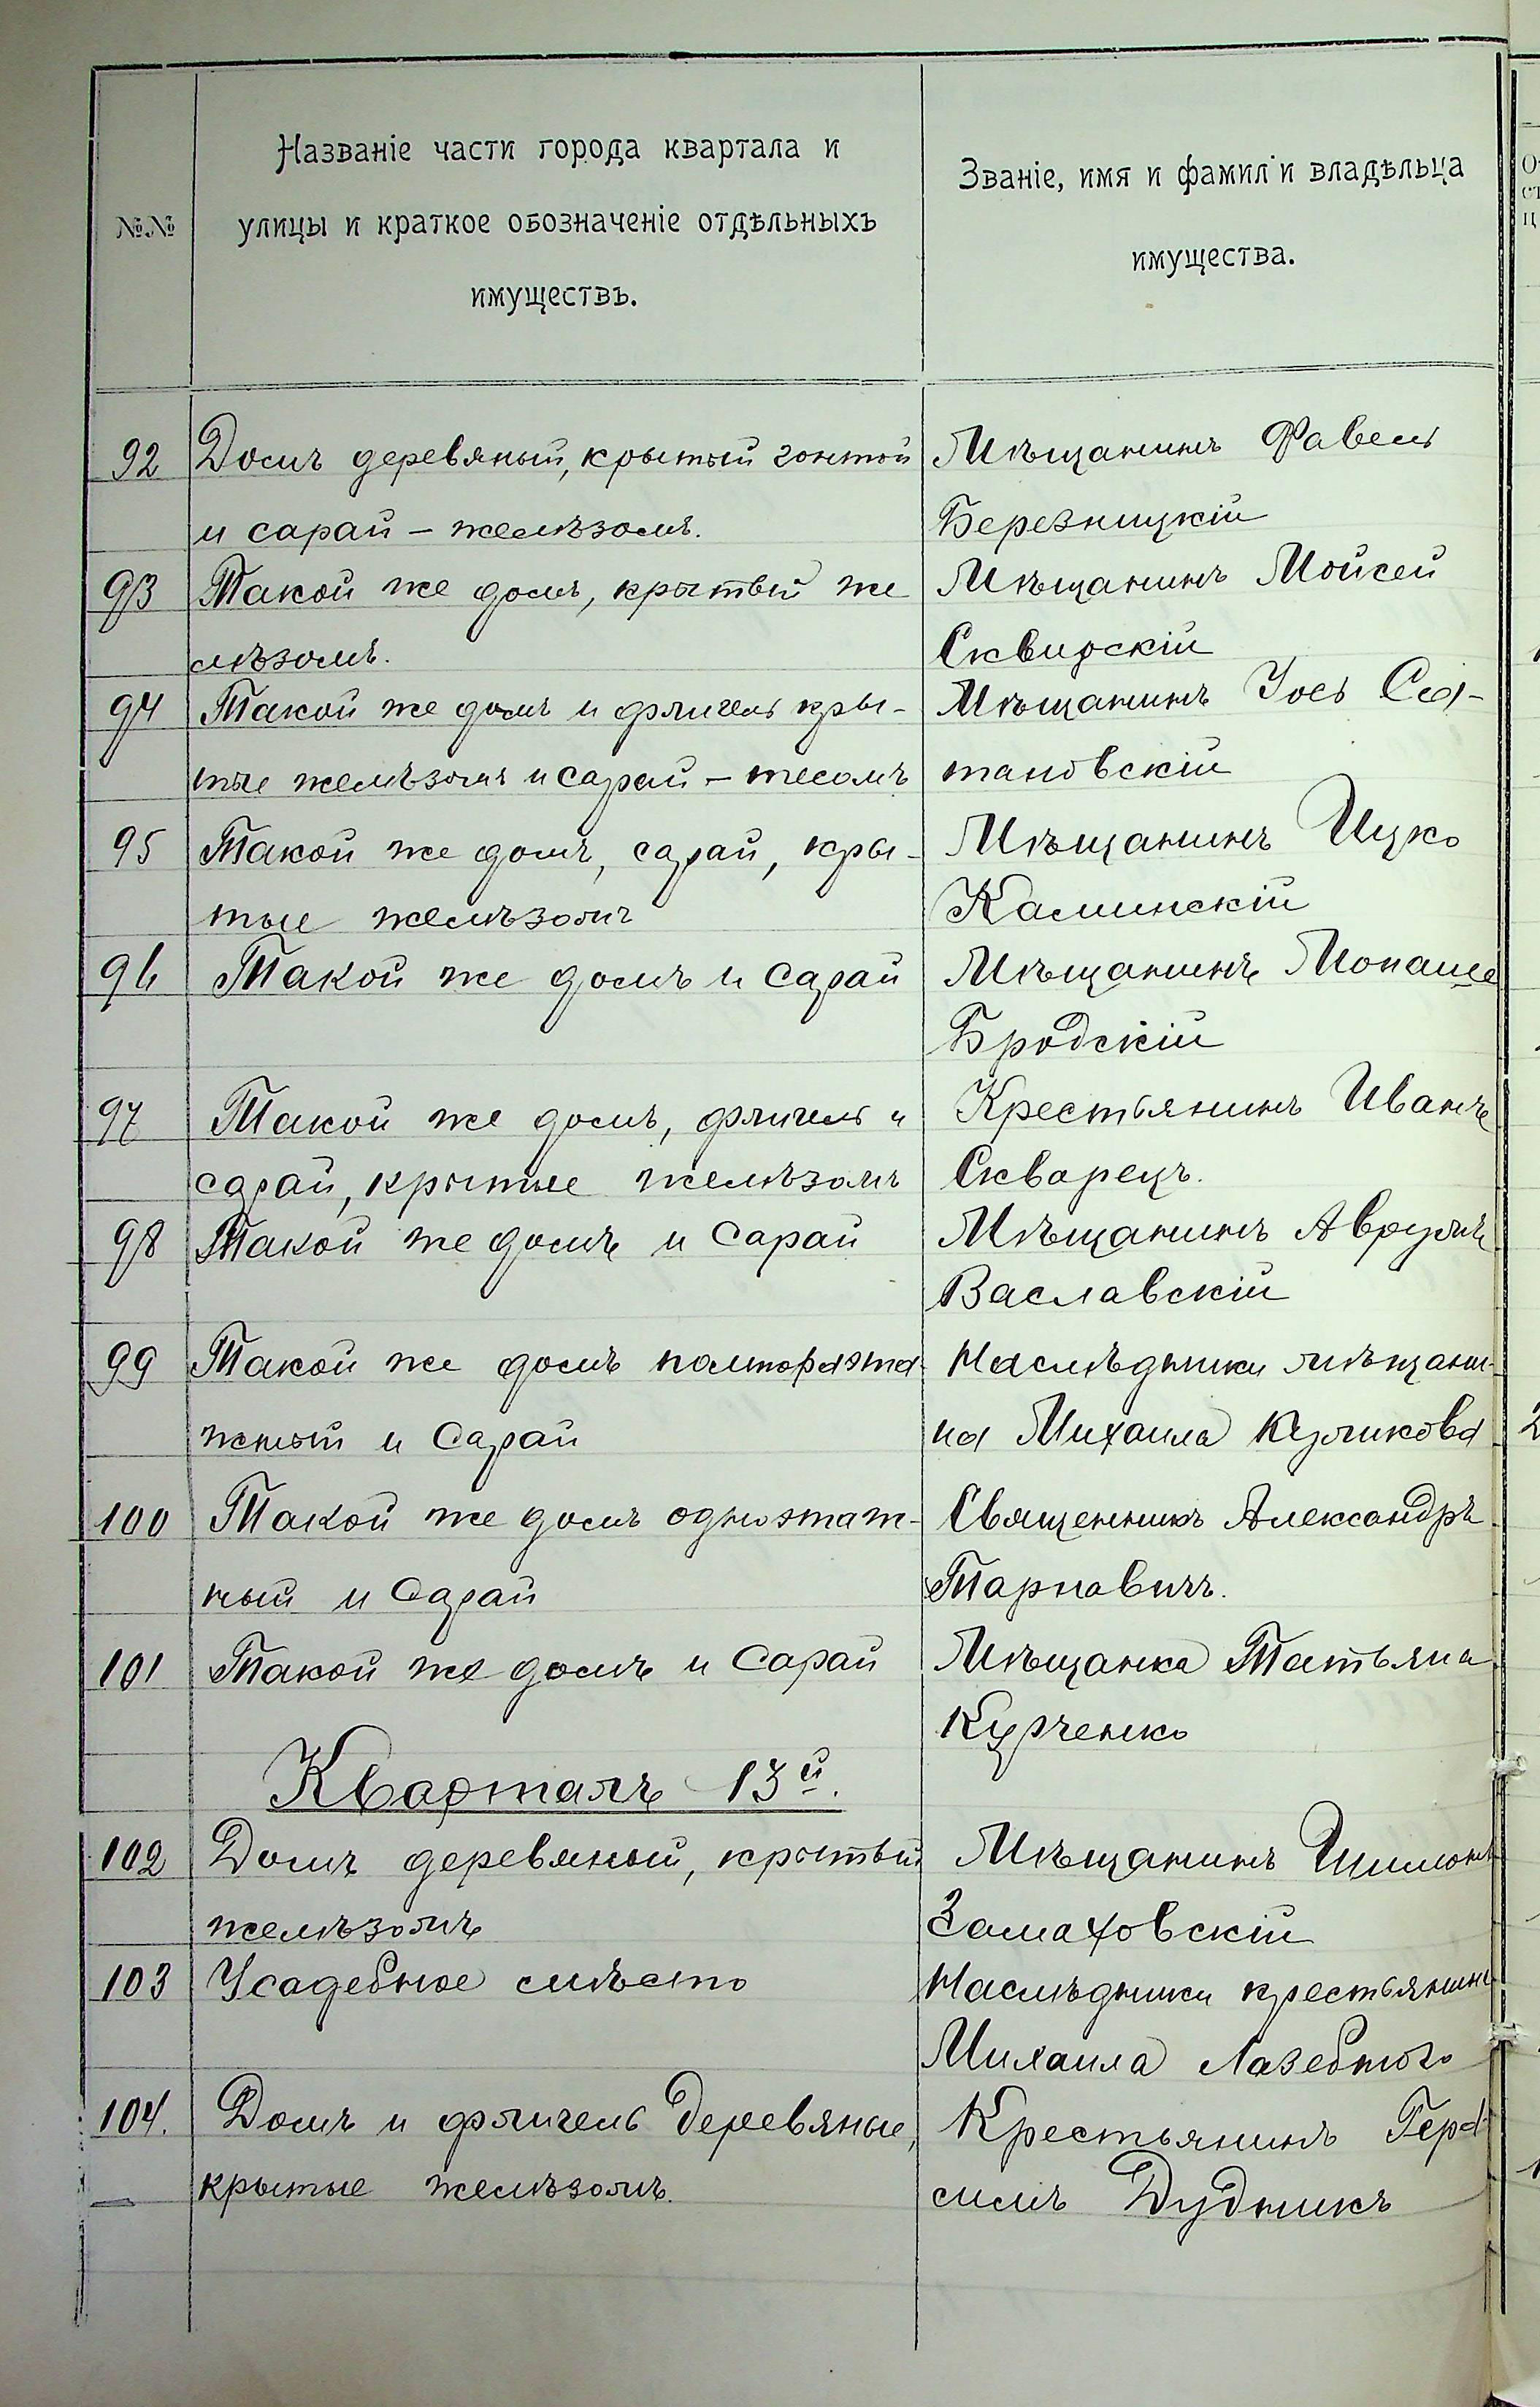 №№
Названіе части города квартала и
улицы и краткое обозначеніе отдѣльныхъ
имуществъ.
Званіе, имя и фамиліи владѣльца
имущества.
92 Домъ деревяный, крытый гонтой Мѣщанинъ Фавель
и сарай – желѣзомъ. Березницкій
93 Такой же домъ, крытый же Мѣщанинъ Мойсей
лѣзомъ. Сквирскій
94 Такой же домъ и флигель кры- Мѣщанинъ Іось Са-
тые желѣзомъ и сарай – тесомъ тановскій
95 Такой же домъ, сарай, кры- Мѣщанинъ Ицко
тые желѣзомъ Калинскій
96 Такой же домъ и сарай Мѣщанинъ Монаше
Бродскій
97 Такой же домъ, флигель и Крестьянинъ Иванъ
сарай, крытые желѣзомъ Скварецъ.
98 Такой же домъ и сарай Мѣщанинъ Аврумъ
Ваславскій
99 Такой же домъ полтораэта- Наслѣдники мѣщани-
жный и сарай на Михаила Куликова
100 Такой же домъ одноэтаж- Священникъ Александръ
ный и сарай Тарнавичъ.
101 Такой же домъ и сарай Мѣщанка Татьяна
Курченко
Кварталъ 13й.
102 Домъ деревяный, крытый Мѣщанинъ Шимонъ
желѣзомъ Замаховскій
103 Усадебное мѣсто Наслѣдники крестьянина
Михаила Лазебного
104. Домъ и флигель деревяные, Крестьянинъ Гера-
крытые желѣзомъ. симъ Дудникъ